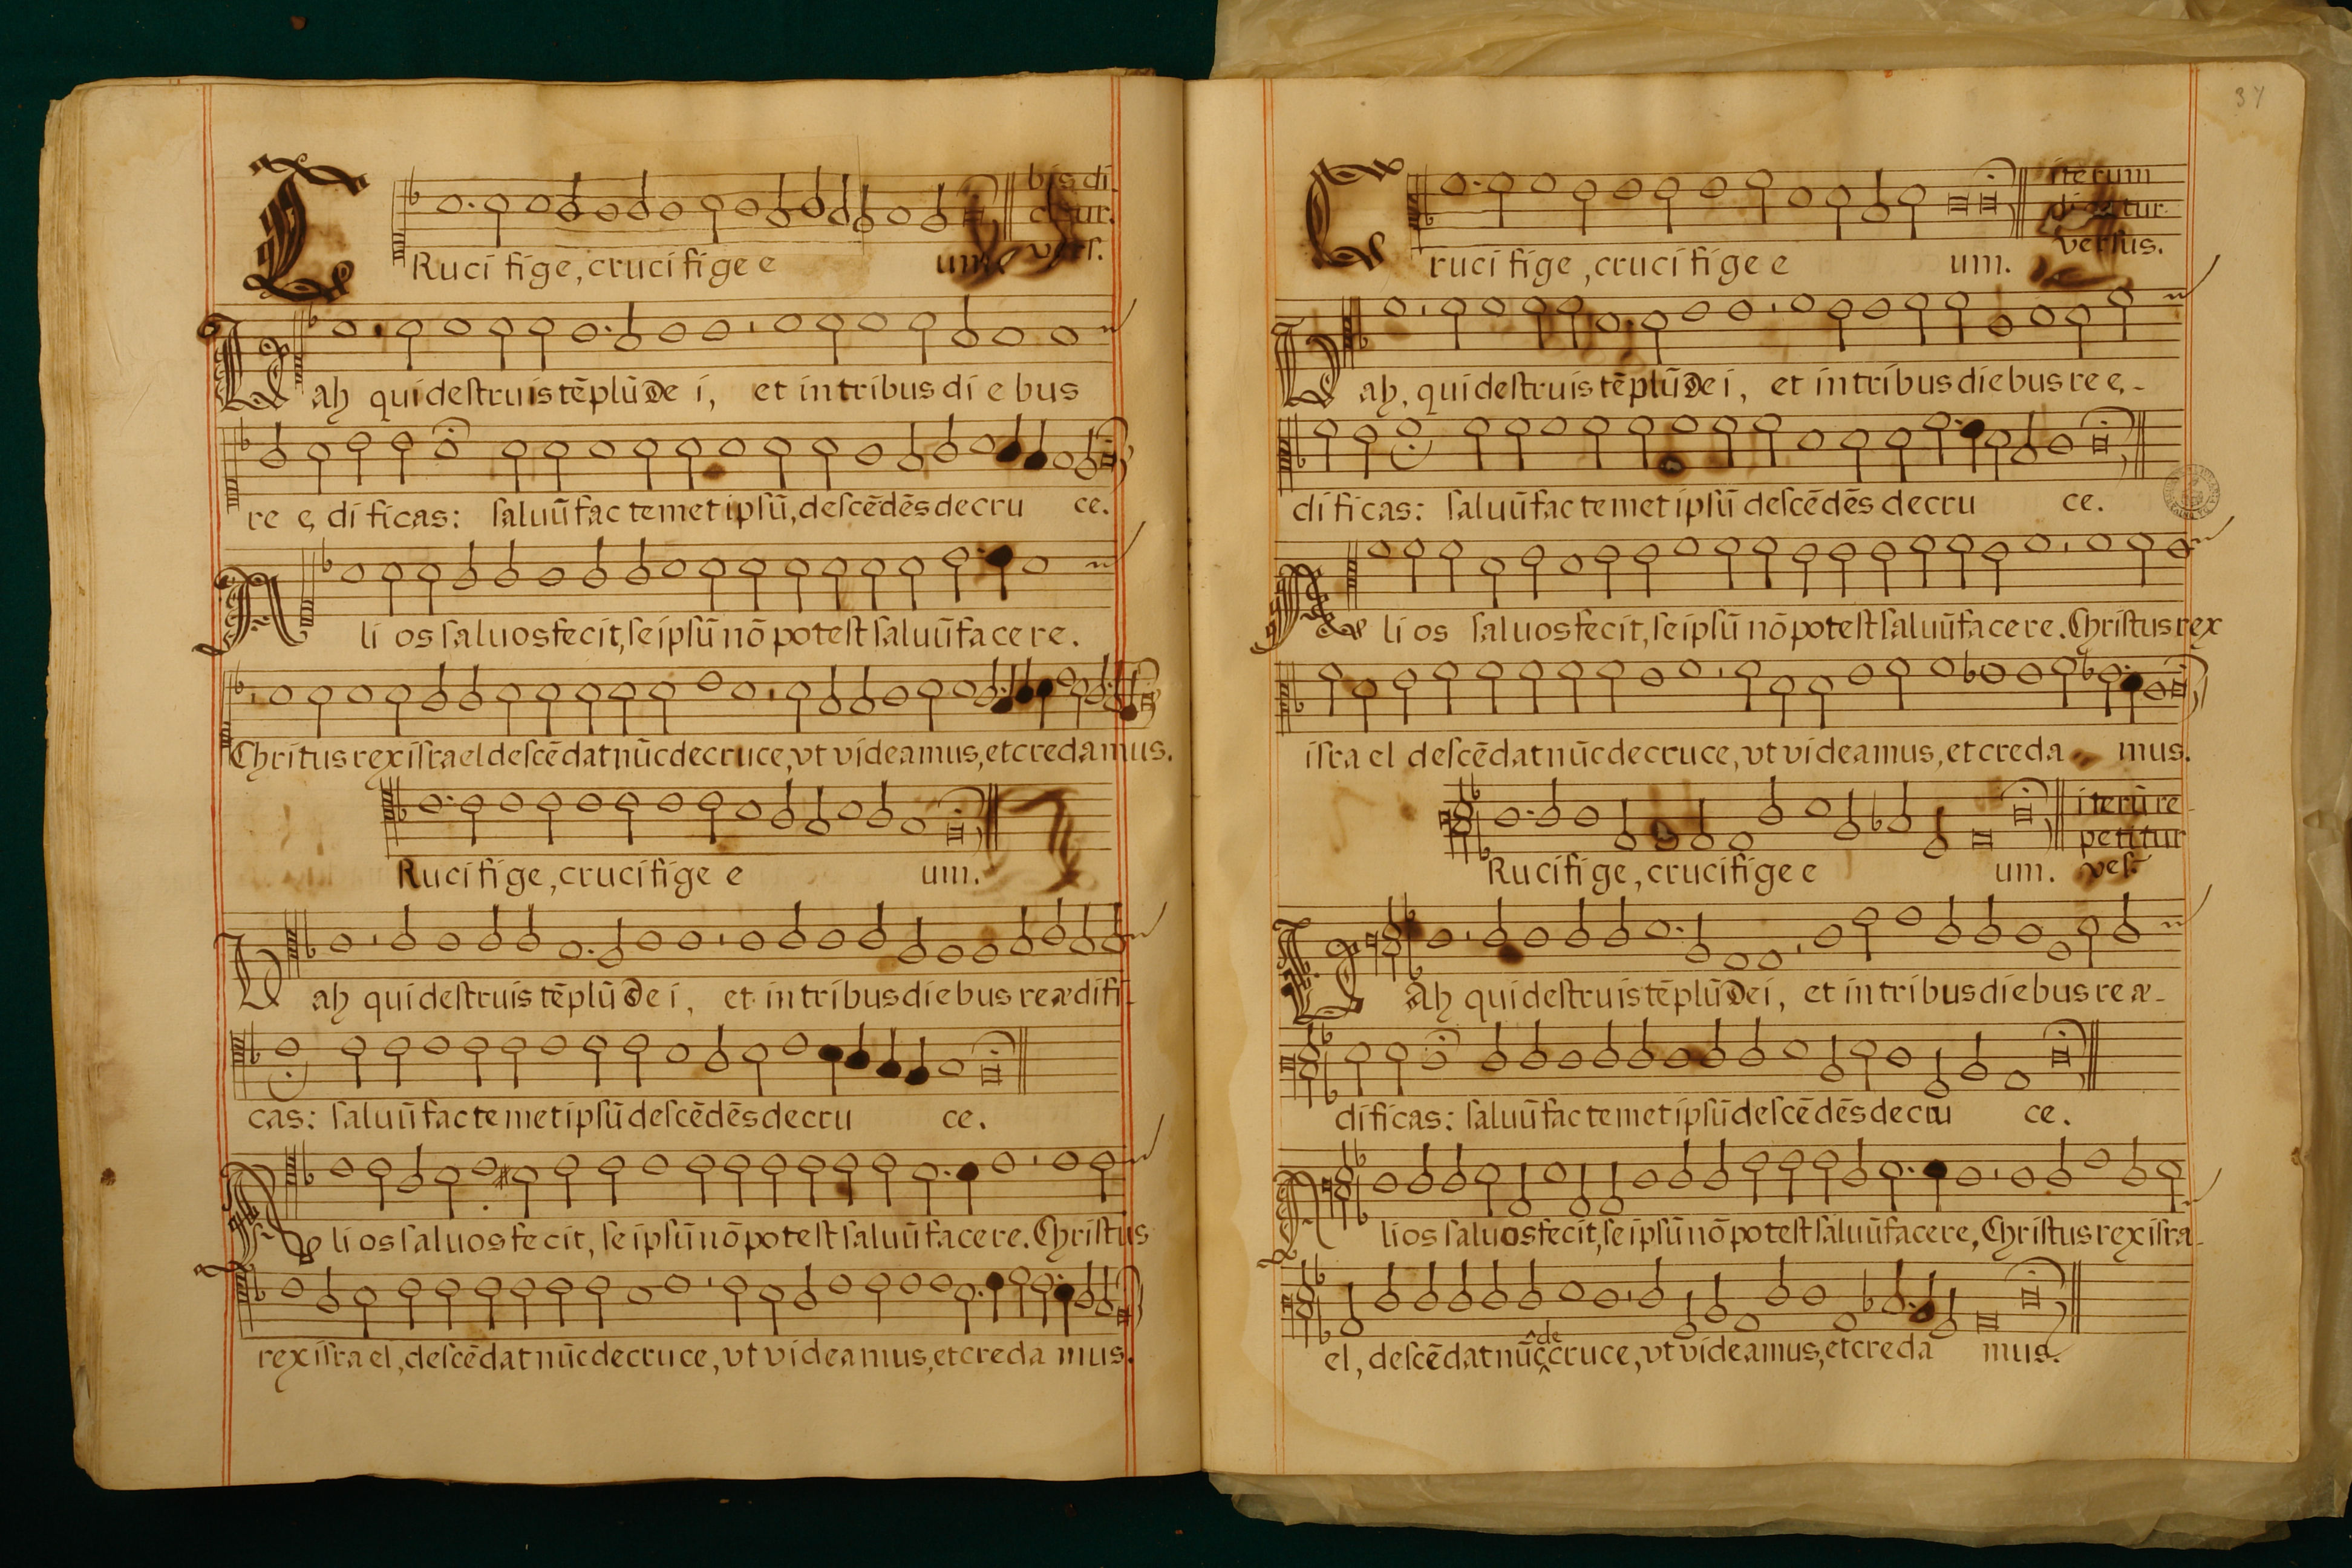 CRuci fige, cruci fige e um. bis di
citur.
vers.
Vah qui destruis tēplū Dei, et in tribus di e bus
re ę di ficas: saluū fac temet ipsū, descēdēs de cru ce.
Ali os saluos fecit, se ipsū nō potest saluū face re.
Chritus rex israel descēdat nūc de cruce, vt videamus, et credamus.
Ruci fi ge, cruci fi ge e um.
Vah qui destruis tēplū Dei, et in tribus diebus reædifi-
cas: saluū fac temet ipsū descēdēs de cru ce.
Ali os saluos fe cit, se ipsū nō potest saluū facere. Christus
rex isra el, descēdat nūc de cruce, vt videamus, et creda mus.
37
Cruci fige, cruci fige e um. iterum
dicatur
versus.
Vah, qui destruis tēplū Dei, et in tribus diebus re ę-
di ficas: saluū fac temet ipsū descēdēs de cru ce.
Ali os saluos fecit, se ipsū nō potest saluū facere. Christus rex
isra el descēdat nūc de cruce, vt videamus, et creda mus.
Ruci fi ge, cruci fige e um. iterū re-
petitur
vest
VAh qui destruis tēplū Dei, et in tribus diebus re æ-
di ficas: saluū fac temet ipsū descēdēs de cru ce.
Ali os saluos fecit, se ipsū nō potest saluū facere, Christus rex isra-
el, descēdat nūc ^de cruce, vt videamus, et creda mus.